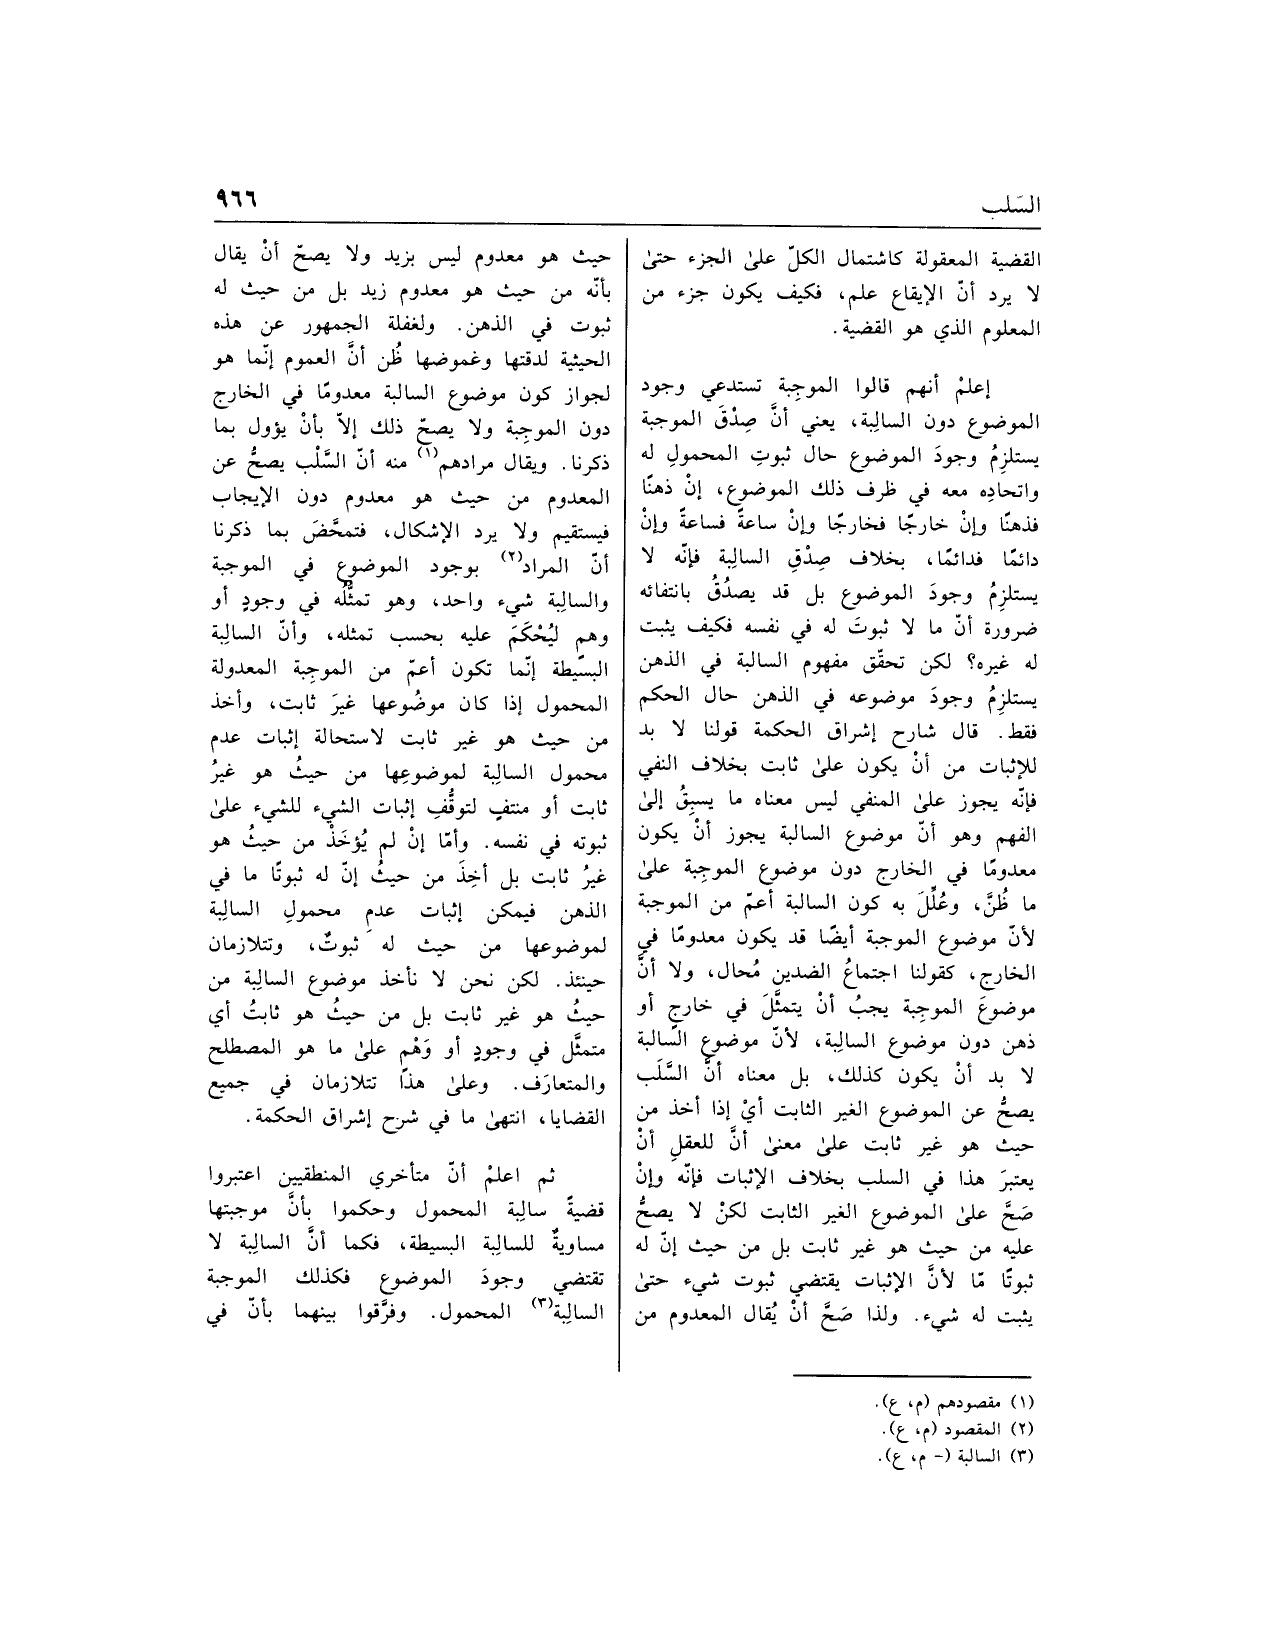 السّلب
٩٦٦
القضية المعقولة كاشتمال الكلّ علىٰ الجزء حتىٰ
لا يرد أنّ الإيقاع علم، فكيف يكون جزء من
المعلوم الذي هو القضية.
إعلمْ أنهم قالوا الموجِبة تستدعي وجود
الموضوع دون السالِبة، يعني أنَّ صِدْقَ الموجبة
يستلزِمُ وجودَ الموضوع حال ثبوتِ المحمولِ له
واتحادِه معه في ظرف ذلك الموضوع، إنْ ذهنًا
فذهنًا وإنْ خارجًا فخارجًا وإنْ ساعةً فساعةً وإنْ
دائمًا فدائمًا، بخلاف صِدْقِ السالِبة فإنّه لا
يستلزِمُ وجودَ الموضوع بل قد يصدُقُ بانتفائه
ضرورة أنّ ما لا ثبوتَ له في نفسه فكيف يثبت
له غيره؟ لكن تحقّق مفهوم السالبة في الذهن
يستلزِمُ وجودَ موضوعه في الذهن حال الحكم
فقط. قال شارح إشراق الحكمة قولنا لا بد
للإثبات من أنْ يكون علىٰ ثابت بخلاف النفي
فإنّه يجوز علىٰ المنفي ليس معناه ما يسبِقُ إلىٰ
الفهم وهو أنّ موضوع السالبة يجوز أنْ يكون
معدومًا في الخارج دون موضوع الموجِبة علىٰ
ما ظُنَّ، وعُلِّلَ به كون السالبة أعمّ من الموجبة
لأنّ موضوع الموجبة أيضًا قد يكون معدومًا في
الخارج، كقولنا اجتماعُ الضدين مُحال، ولا أنَّ
موضوعَ الموجِبة يجبُ أنْ يتمثَّلَ في خارجٍ أو
ذهن دون موضوع السالِبة، لأنّ موضوع السّالبة
لا بد أنْ يكون كذلك، بل معناه أنَّ السَّلَب
يصحُّ عن الموضوع الغير الثابت أيْ إذا أخذ من
حيث هو غير ثابت علىٰ معنىٰ أنَّ للعقلِ أنْ
يعتبرَ هذا في السلب بخلاف الإثبات فإنّه وإنْ
صَحَّ علىٰ الموضوع الغير الثابت لكنْ لا يصحُّ
عليه من حيث هو غير ثابت بل من حيث إنّ له
ثبوتًا مّا لأنَّ الإثبات يقتضي ثبوت شيء حتىٰ
يثبت له شيء. ولذا صَحَّ أنْ يُقال المعدوم من
حيث هو معدوم ليس بزيد ولا يصحّ أنْ يقال
بأنّه من حيث هو معدوم زيد بل من حيث له
ثبوت في الذهن. ولغفلة الجمهور عن هذه
الحيثية لدقتها وغموضها ظُن أنَّ العموم إنّما هو
لجواز كون موضوع السالبة معدومًا في الخارج
دون الموجِبة ولا يصحّ ذلك إلاّ بأنْ يؤول بما
ذكرنا. ويقال مرادهم(١) منه أنّ السَّلْب يصحُّ عن
المعدوم من حيث هو معدوم دون الإيجاب
فيستقيم ولا يرد الإشكال، فتمحَّضَ بما ذكرنا
أنّ المراد(٢) بوجود الموضوع في الموجبة
والسالِبة شيء واحد، وهو تمثُّلُه في وجودٍ أو
وهم ليُحْكَمَ عليه بحسب تمثله، وأنّ السالِبة
البسّيطة إنّما تكون أعمّ من الموجِبة المعدولة
المحمول إذا كان موضُوعها غيرَ ثابت، وأخذ
من حيث هو غير ثابت لاستحالة إثبات عدم
محمول السالِبة لموضوعِها من حيثُ هو غيرُ
ثابت أو منتفٍ لتوقُّفِ إثبات الشيء للشيء علىٰ
ثبوته في نفسه. وأمّا إنْ لم يُؤخَذْ من حيثُ هو
غيرُ ثابت بل أخِذَ من حيثُ إنّ له ثبوتًا ما في
الذهن فيمكن إثبات عدمِ محمولِ السالِبة
لموضوعها من حيث له ثبوتٌ، وتتلازمان
حينئذ. لكن نحن لا نأخذ موضوع السالِبة من
حيثُ هو غير ثابت بل من حيثُ هو ثابتُ أي
متمثَّل في وجودٍ أو وَهْم علىٰ ما هو المصطلح
والمتعارَف. وعلىٰ هذا تتلازمان في جميع
القضايا، انتهىٰ ما في شرح إشراق الحكمة.
ثم اعلمْ أنّ متأخري المنطقيين اعتبروا
قضيةً سالِبة المحمول وحكموا بأنَّ موجبتها
مساويةٌ للسالِبة البسيطة، فكما أنَّ السالِبة لا
تقتضي وجودَ الموضوع فكذلك الموجبة
السالِبة(٣) المحمول. وفرَّقوا بينهما بأنّ في
(١) مقصودهم (م، ع).
(٢) المقصود (م، ع).
(٣) السالبة (- م، ع).